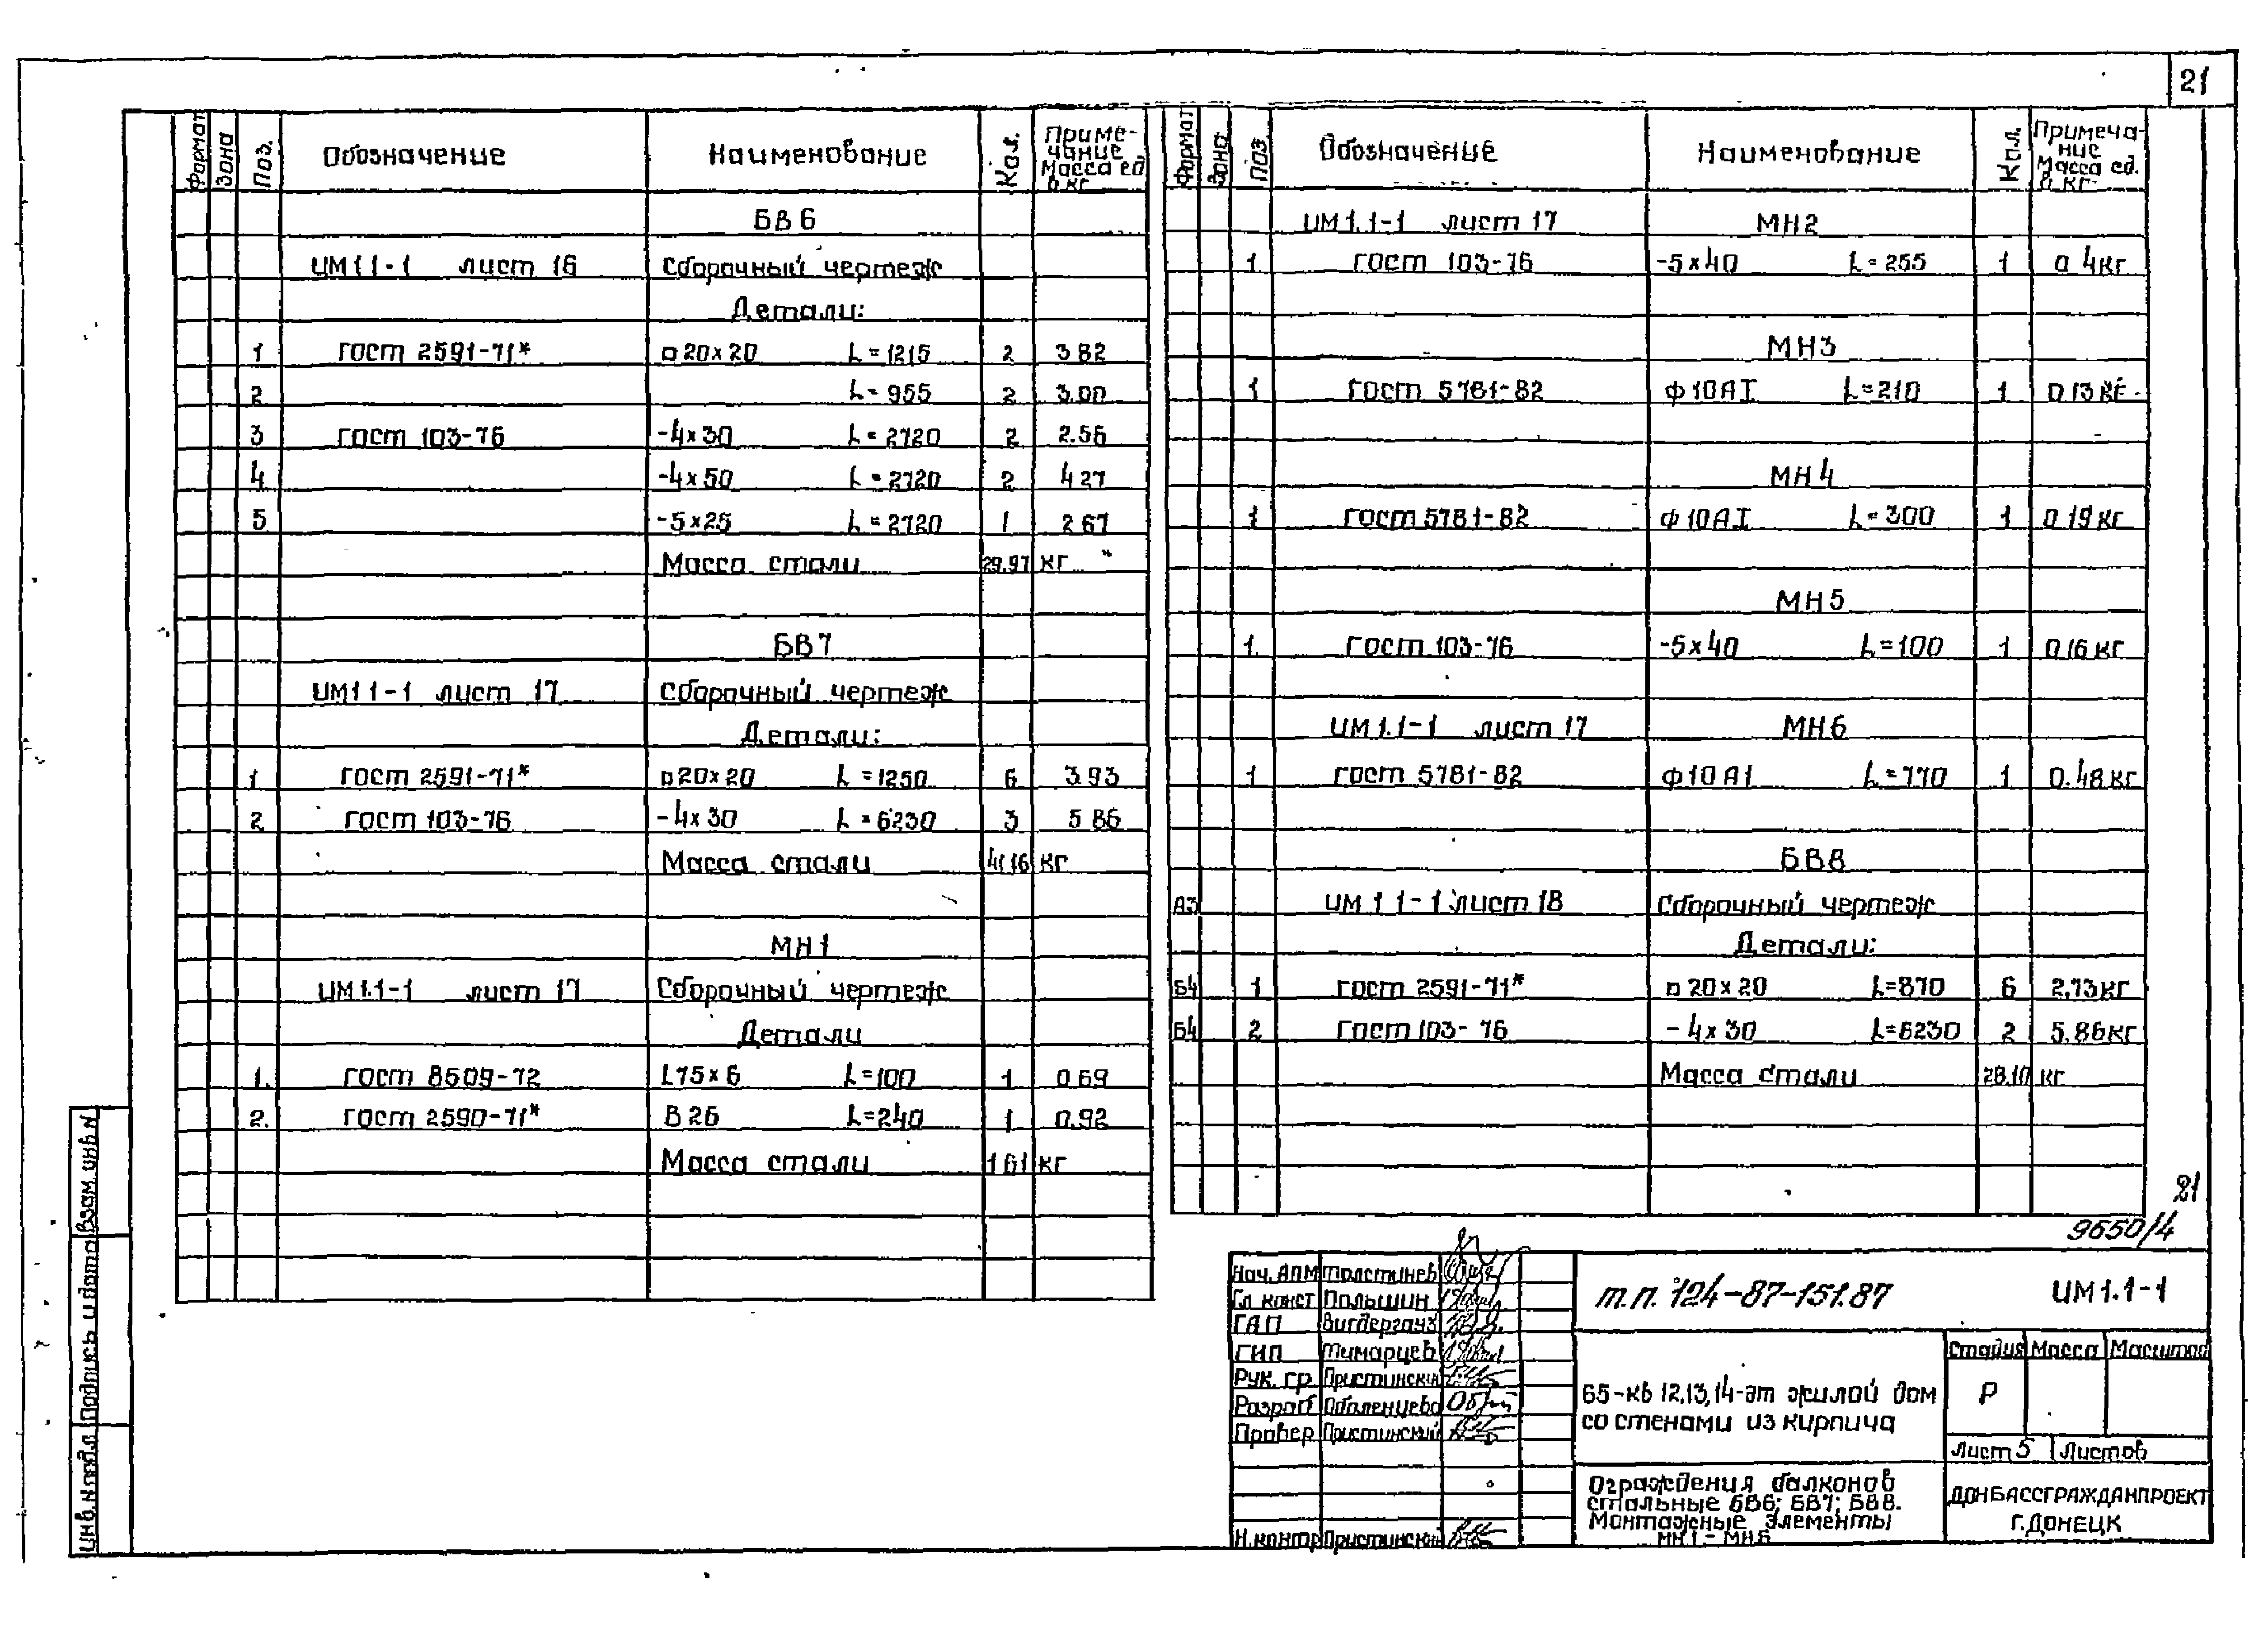 21
Формат Зона Поз. Обозначение Наименование Кол. Приме-чание Масса ед. в кг
БВ6
ИМ1 1-1 лист 16 Сборочный чертеж
Детали:
1 ГОСТ 2591-71* □20×20 L=1215 2 3 82
2 L=955 2 3.00
3 ГОСТ 103-76 -4×30 L=2720 2 2.56
4 -4×50 L=2720 2 4 27
5 -5×25 L=2720 1 2 67
Масса стали 29.97 кг
БВ7
ИМ1 1-1 лист 17 Сборочный чертеж
Детали:
1 ГОСТ 2591-71* □20×20 L=1250 6 3.93
2 ГОСТ 103-76 -4×30 L=6230 3 5 86
Масса стали 41 16 кг
МН1
ИМ1.1-1 лист 17 Сборочный чертеж
Детали
1. ГОСТ 8509-72 L75×6 L=100 1 0.69
2. ГОСТ 2590-71* В26 L=240 1 0.92
Масса стали 1 61 кг
Формат Зона Поз Обозначение Наименование Кол. Примеча-ние Масса ед. в кг
ИМ1.1-1 лист 17 МН2
1 ГОСТ 103-76 -5×40 L=255 1 0 4кг
МН3
1 ГОСТ 5781-82 Ф10АI L=210 1 0 13 кг
МН4
1 ГОСТ 5781-82 Ф10АI L=300 1 0 19 кг
МН5
1. ГОСТ 103-76 -5×40 L=100 1 0 16 кг
ИМ1.1-1 лист 17 МН6
1 ГОСТ 5781-82 Ф10А1 L=770 1 0.48 кг
БВ8
А3 ИМ 1 1-1 лист 18 Сборочный чертеж
Детали:
Б4 1 ГОСТ 2591-71* □20×20 L=870 6 2,73 кг
Б4 2 ГОСТ 103-76 -4×30 L=6230 2 5.86 кг
Масса стали 28.10 кг
21
9650/4
Нач. АПМ Толстинев
Гл конст Польшин
ГАП Вигдергауз
ГИП Тимарцев
Рук. гр. Пристински
Разраб Оболенцева
Провер Пристинский
Н.контр Пристинский
т.п. 124-87-151.87 ИМ1.1-1
65-кв 12,13,14-эт жилой дом
со стенами из кирпича
Стадия Масса Масштаб
Р
Лист 5 Листов
Ограждения балконов
стальные БВ6; БВ7; БВ8.
Монтажные элементы
МН1-МН6
ДОНБАССГРАЖДАНПРОЕКТ
Г.ДОНЕЦК
Взам. инв.N
Подпись и дата
Инв.N подл